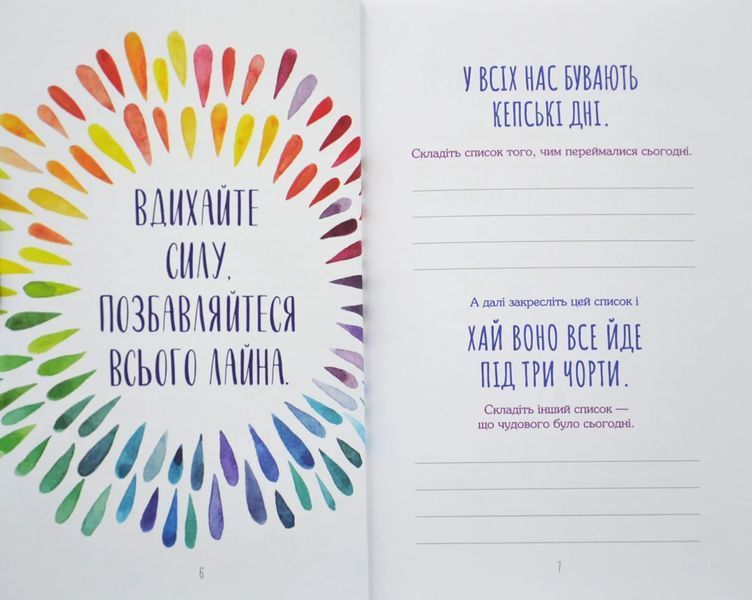 ВДИХАЙТЕ
СИЛУ,
ПОЗБАВЛЯЙТЕСЯ
ВСЬОГО ЛАЙНА.
6
У ВСІХ НАС БУВАЮТЬ
КЕПСЬКІ ДНІ.
Складіть список того, чим переймалися сьогодні.
А далі закресліть цей список і
ХАЙ ВОНО ВСЕ ЙДЕ
ПІД ТРИ ЧОРТИ.
Складіть інший список —
що чудового було сьогодні.
7